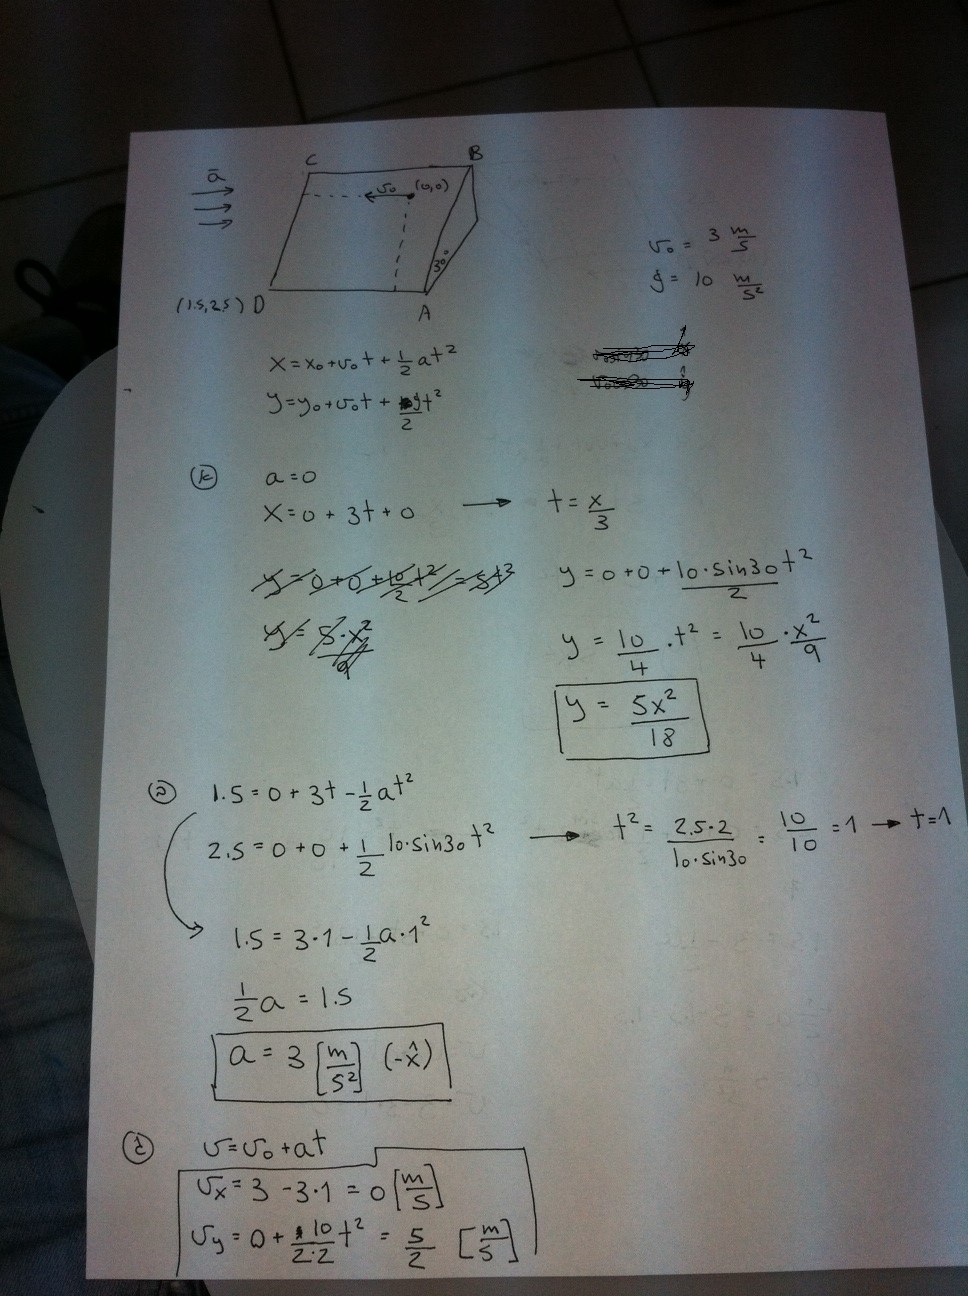 C B
ā
v₀ (0,0)
30°
(1.5, 2.5) D
A
v₀ = 3 m/s
g = 10 m/s²
x = x₀ + v₀t + 1/2 at²
y = y₀ + v₀t + g/2 t²
a = 0
x = 0 + 3t + 0 → t = x/3
y = 0 + 0 + 10/2 t² = 5t²
y = 5·x²/9
y = 0 + 0 + 10·sin30/2 t²
y = 10/4 · t² = 10/4 · x²/9
y = 5x²/18
1.5 = 0 + 3t - 1/2 at²
2.5 = 0 + 0 + 1/2 10·sin30 t² → t² = 2.5·2/10·sin30 = 10/10 = 1 → t = 1
1.5 = 3·1 - 1/2 a·1²
1/2 a = 1.5
a = 3 [m/s²] (-x̂)
v = v₀ + at
vx = 3 - 3·1 = 0 [m/s]
vy = 0 + 10/2·2 t² = 5/2 [m/s]